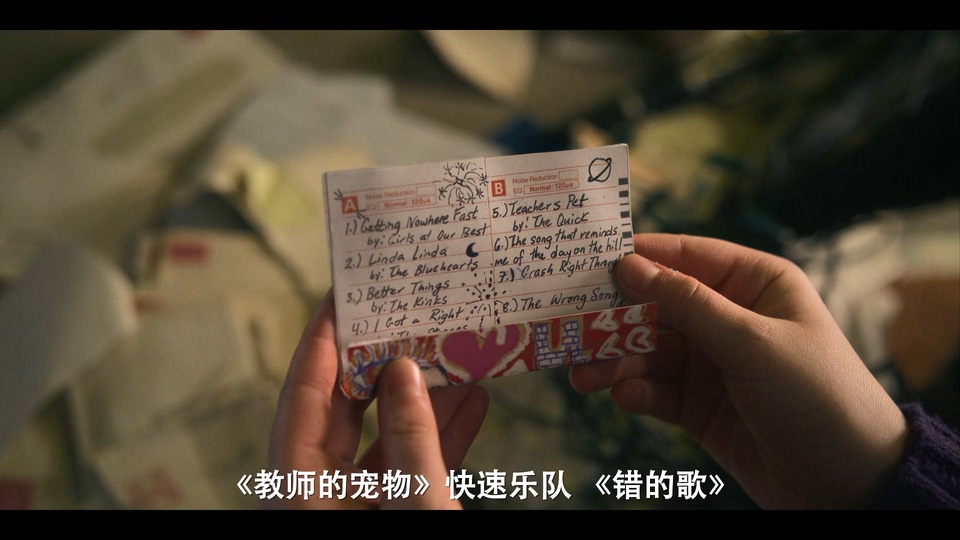 A
Noise Reduction
EQ Normal 120µs
1.) Getting Nowhere Fast
by: Girls at Our Best
2.) Linda Linda
by: The Bluehearts
3.) Better Things
by: The Kinks
4.) I Got a Right
B
Noise Reduction
EQ Normal 120µs
5.) Teachers Pet
by: The Quick
6.) The song that reminds
me of the day on the hill
7.) Crash Right Through
8.) The Wrong Song
《教师的宠物》快速乐队 《错的歌》